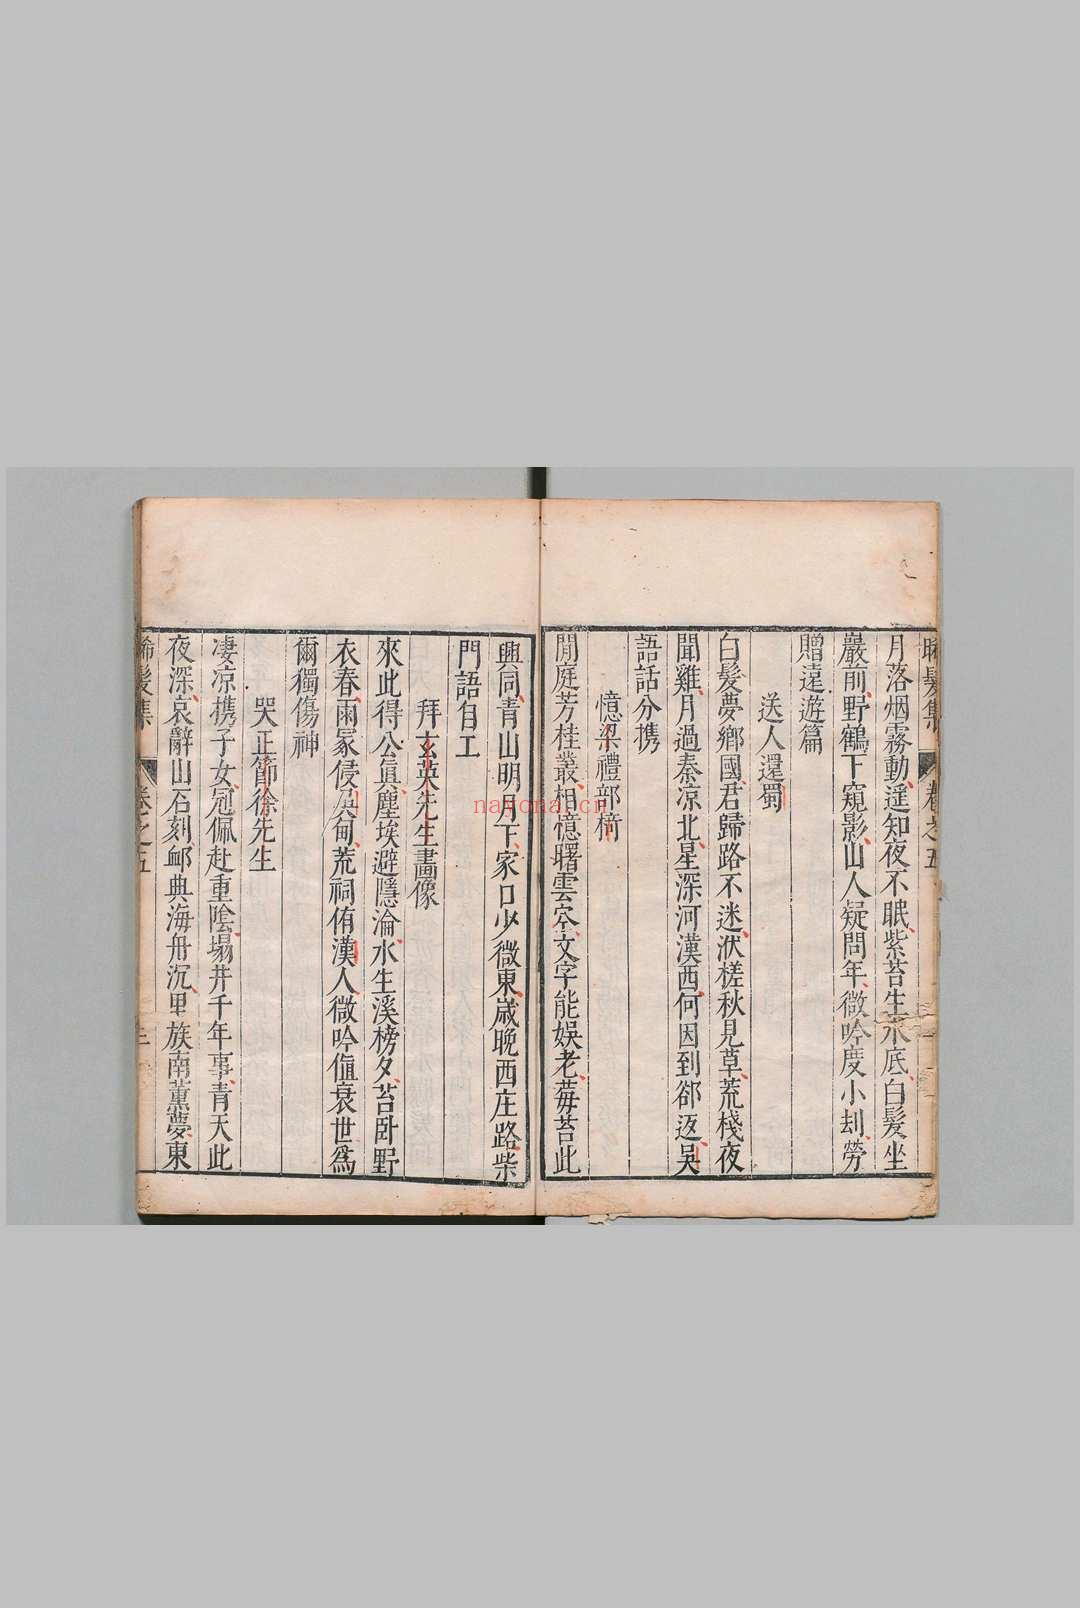 晞髮集 卷之五
月落烟霧動遥知夜不眠紫苔生水底白髮坐
巖前野鶴下窺影山人疑問年微吟度小刼勞
贈遠遊篇
送人還蜀
白髮夢鄉國君歸路不迷洑槎秋見草荒棧夜
聞雞月過秦凉北星深河漢西何因到郤返吳
語話分携
憶梁禮部椅
閒庭芳桂叢相憶曙雲空文字能娛老莓苔此
興同青山明月下家口少微東歲晚西庄路柴
門語自工
拜玄英先生畫像
來此得公真塵埃避隱淪水生溪榜夕苔卧野
衣春雨冢侵吳甸荒祠侑漢人微吟值衰世爲
爾獨傷神
哭正節徐先生
凄凉携子女冠佩赴重陰塌井千年事青天此
夜深哀辭山石刻邮典海舟沉里族南薰夢東
晞髮集 卷之五 三
nayona.cn